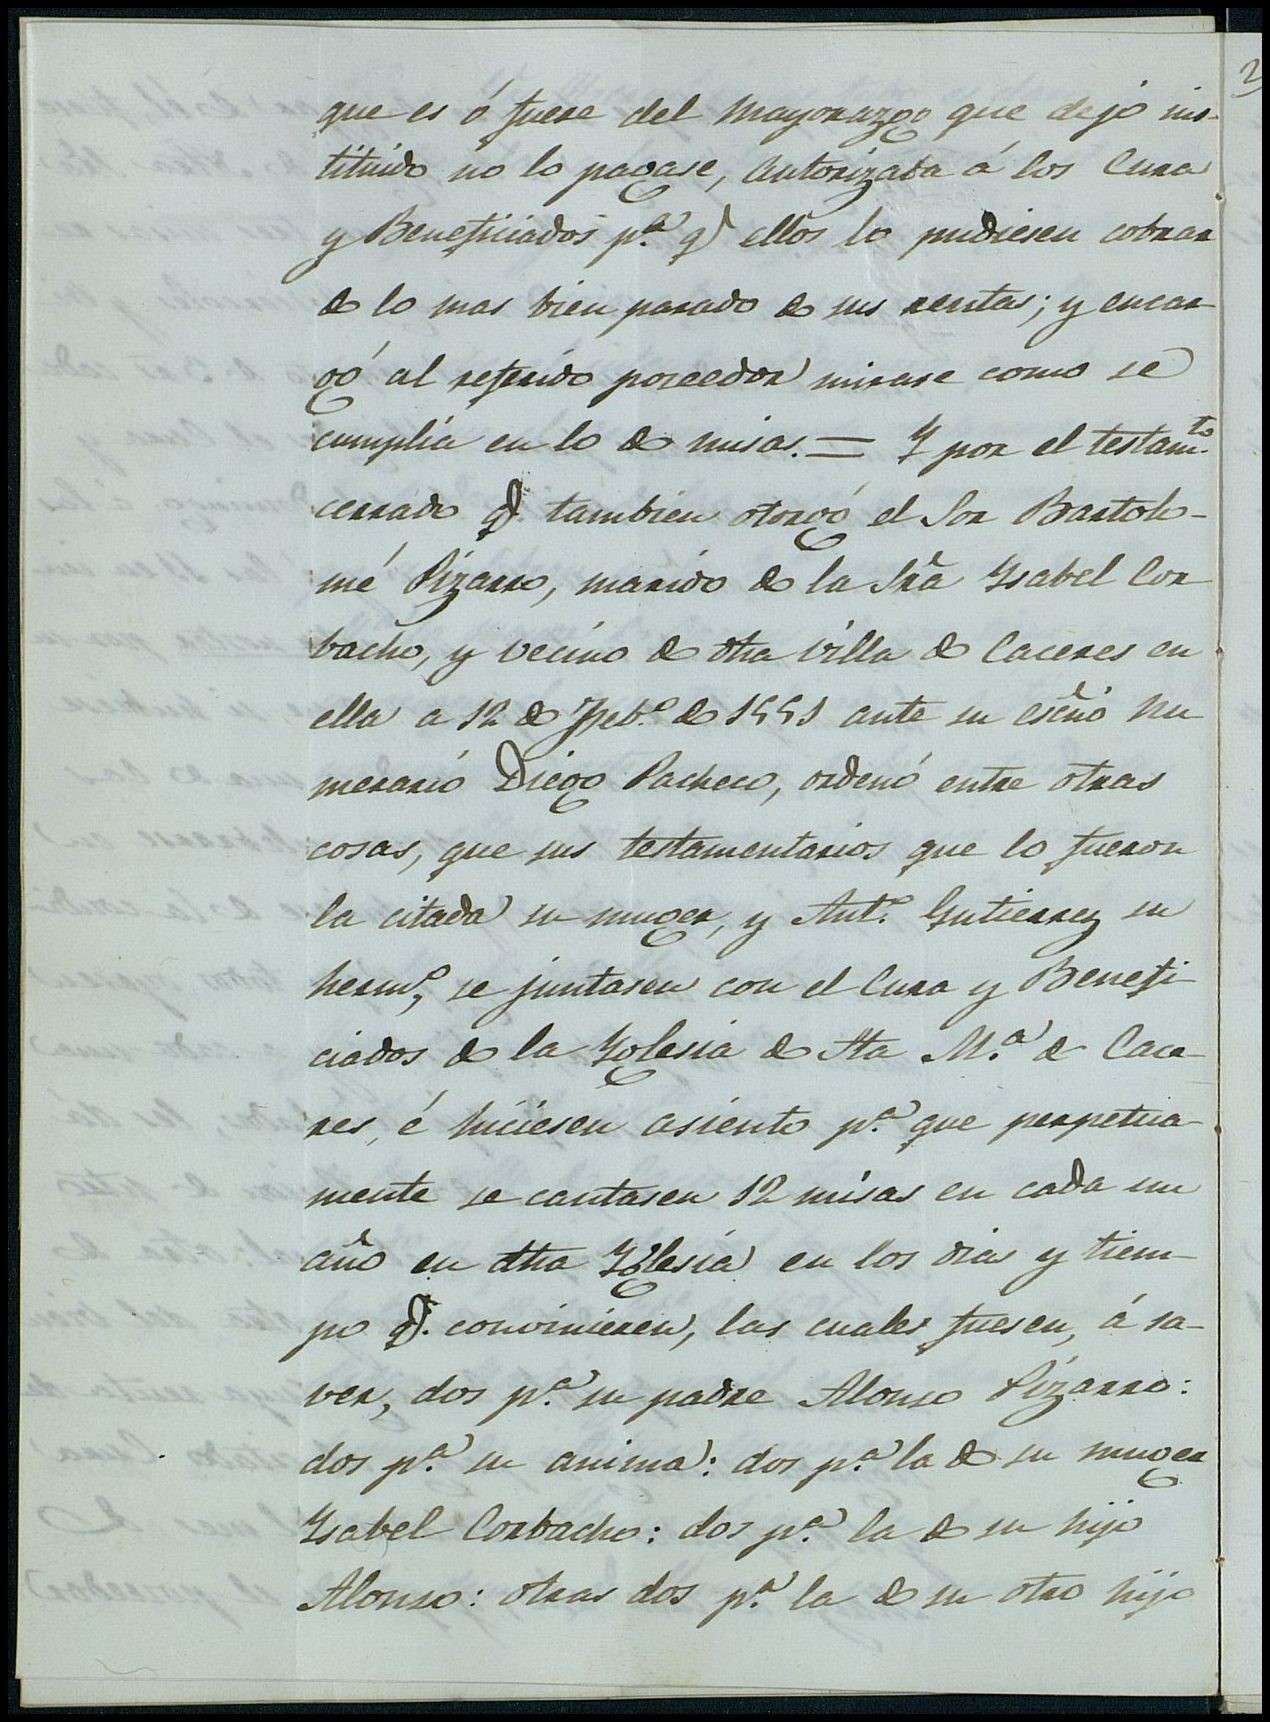 que es ó fuere del Mayorazgo que dejó ins-
tituido no lo pagase, autorizaba á los Cura
y Beneficiados p.ª q.e ellos lo pudiesen cobrar
de lo mas bien parado de sus rentas; y encar
gó al referido poseedor mirase como se
cumplia en lo de misas. = Y por el testam.to
cerrado q.e tambien otorgó el Sor Bartolo-
mé Pizarro, marido de la Sra Ysabel Cor
bacho, y vecino de dha villa de Caceres en
ella a 12 de Feb.o de 1551 ante su escño Nu
merario Diego Pacheco, ordenó entre otras
cosas, que sus testamentarios que lo fueron
la citada su muger, y Ant.o Gutierrez su
herm.o, se juntasen con el Cura y Benefi-
ciados de la Yglesia de Sta M.ª de Cace-
res, é hiciesen asiento p.ª que perpetua-
mente se cantasen 12 misas en cada un
año en dha Yglesia en los dias y tiem-
po q.e convinieren, las cuales fuesen, á sa-
ver, dos p.ª su padre Alonso Pizarro:
dos p.ª su anima: dos p.ª la de su muger
Ysabel Corbacho: dos p.ª la de su hijo
Alonso: otras dos p.ª la de su otro hijo
2